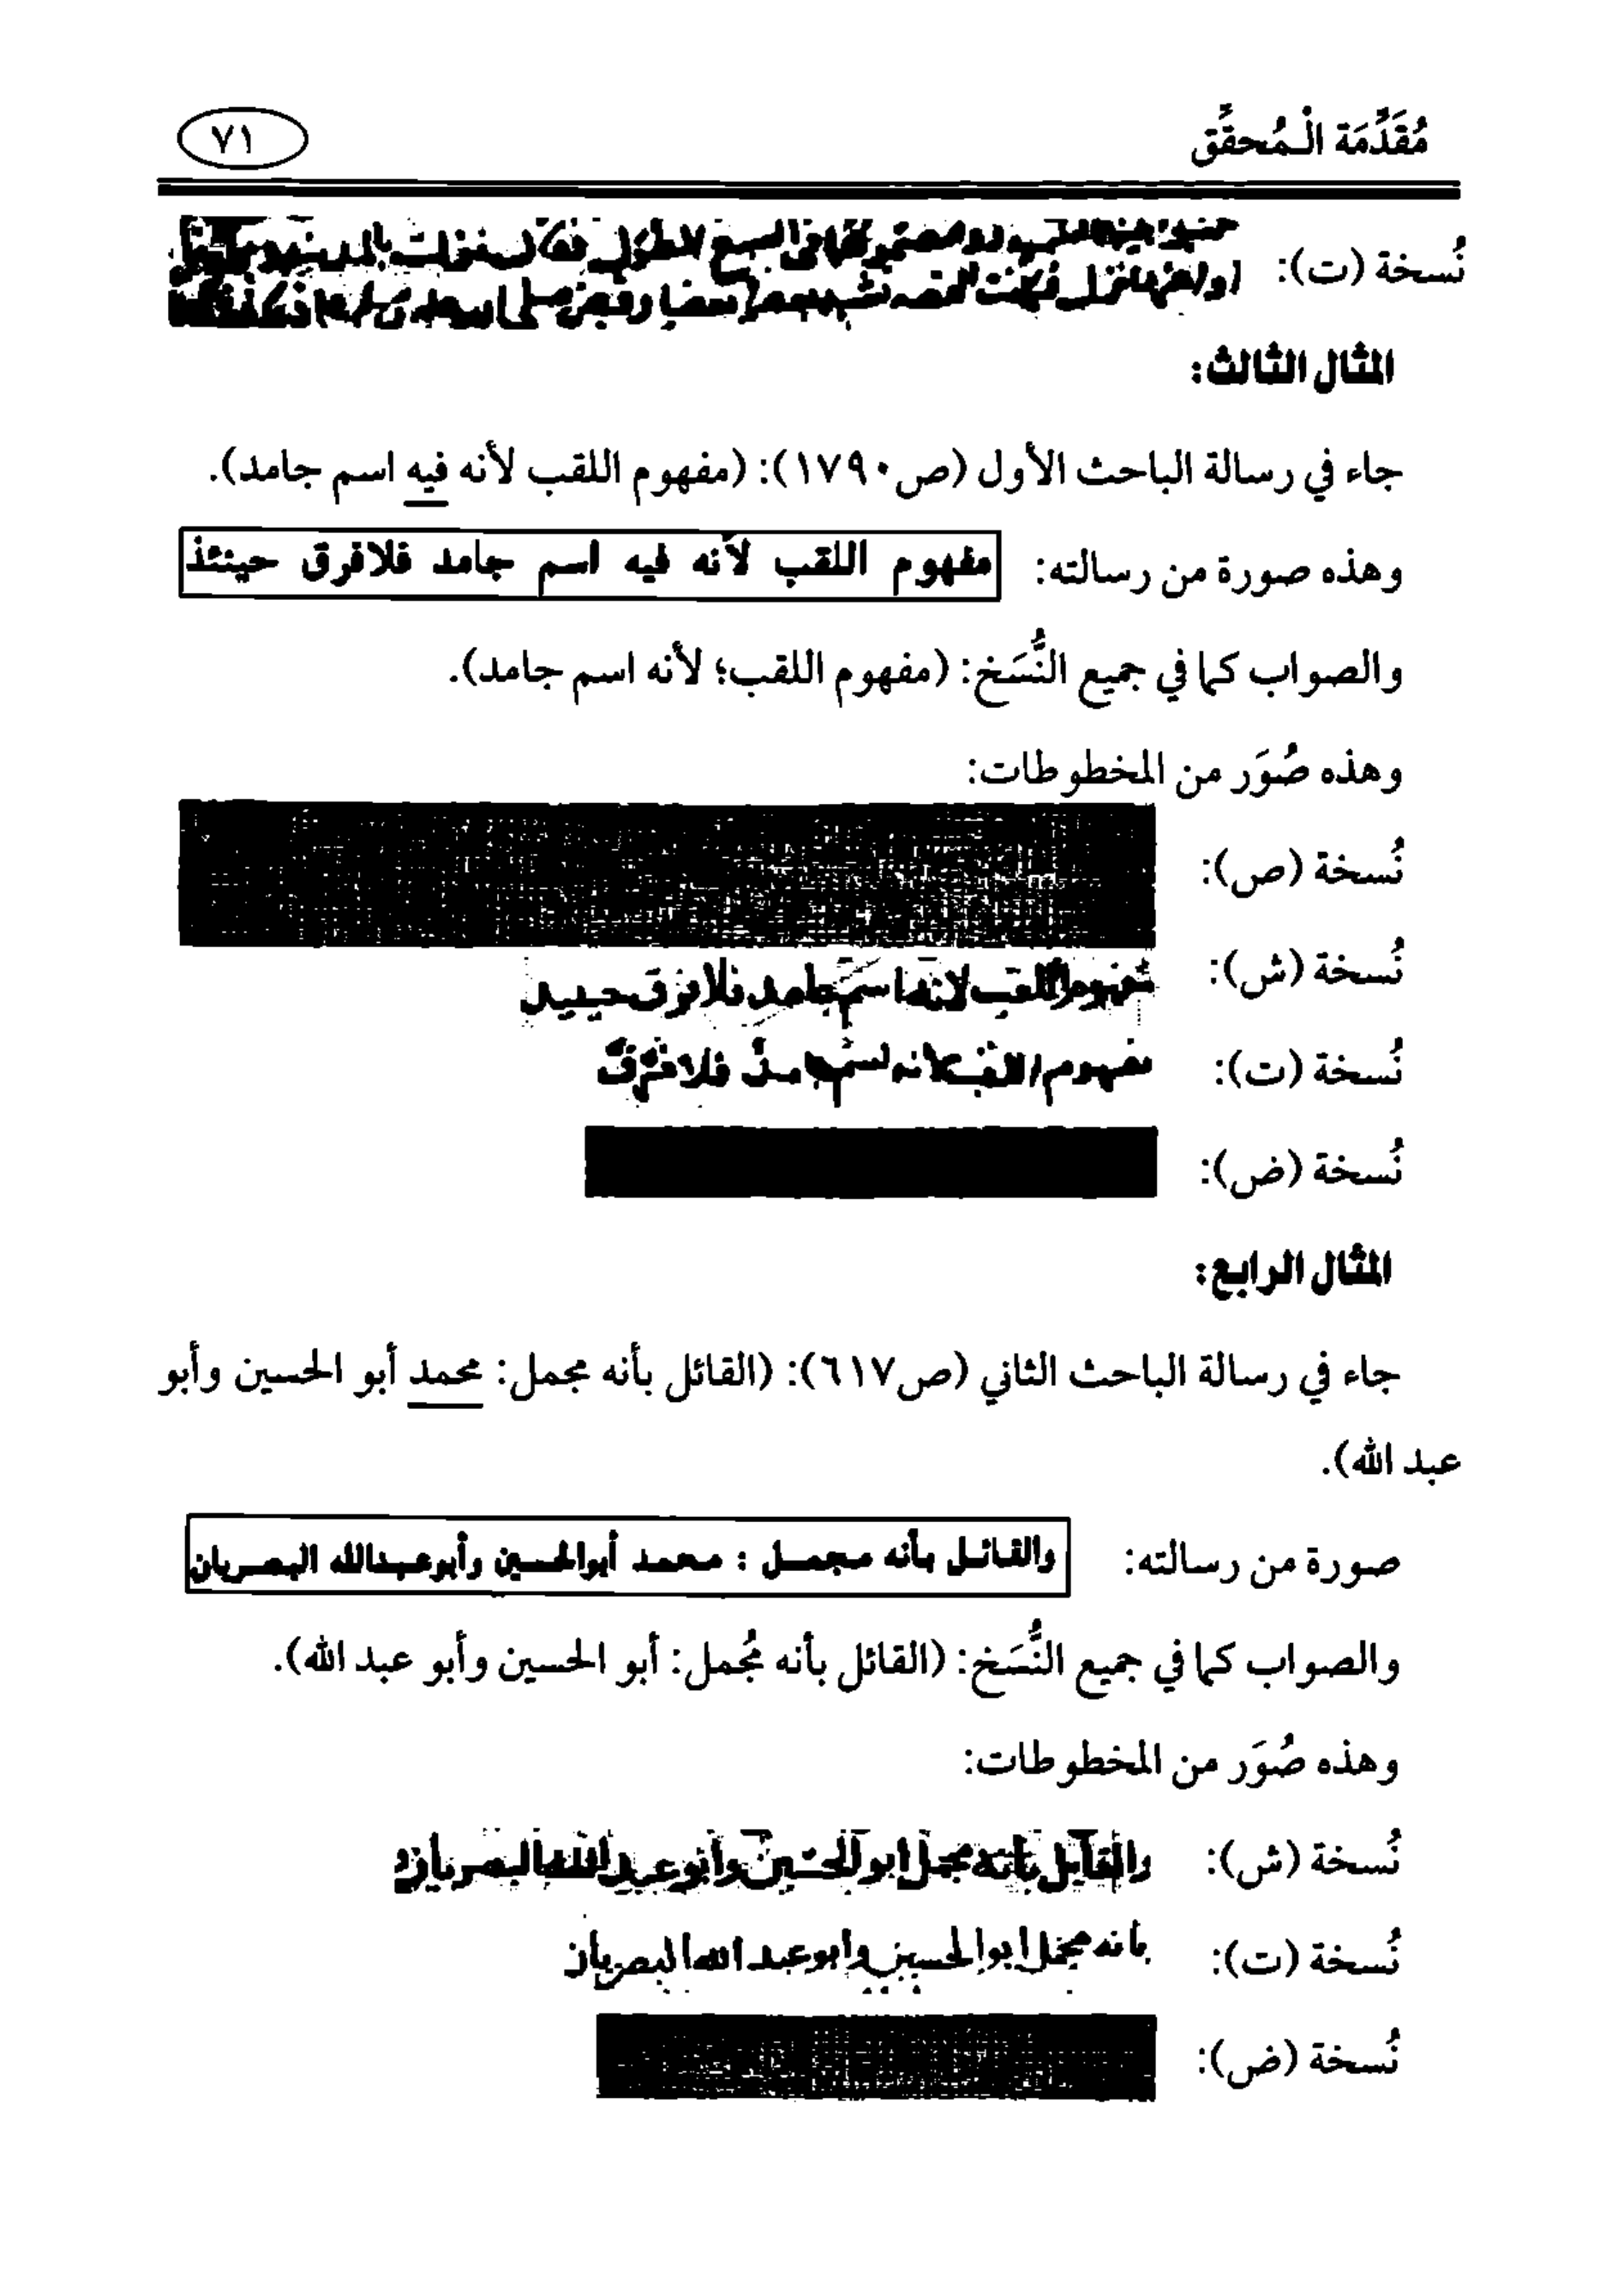 مُقَدِّمَة الْمُحقِّق
٧١
نُسخة (ت):
المثال الثالث:
جاء في رسالة الباحث الأول (ص١٧٩٠): (مفهوم اللقب لأنه فيه اسم جامد).
وهذه صورة من رسالته: مفهوم اللقب لأنه فيه اسم جامد فلافرق حينئذ
والصواب كما في جميع النُّسَخ: (مفهوم اللقب؛ لأنه اسم جامد).
وهذه صُوَر من المخطوطات:
نُسخة (ص):
نُسخة (ش): مفهوم اللقب لانه اسم جامد فلا فرق حينيد
نُسخة (ت): مفهوم اللقب لانه اسم جامد فلا فرق
نُسخة (ض):
المثال الرابع:
جاء في رسالة الباحث الثاني (ص٦١٧): (القائل بأنه مجمل: محمد أبو الحسين وأبو
عبد الله).
صورة من رسالته: والقائل بأنه مجمل : محمد أبوالحسين وأبوعبدالله البصريان
والصواب كما في جميع النُّسَخ: (القائل بأنه مُجمل: أبو الحسين وأبو عبد الله).
وهذه صُوَر من المخطوطات:
نُسخة (ش): والقايل بانه مجمل ابو الحسين وابو عبد الله البصريان
نُسخة (ت): بانه مجمل ابو الحسين وابو عبد الله البصريان
نُسخة (ض):